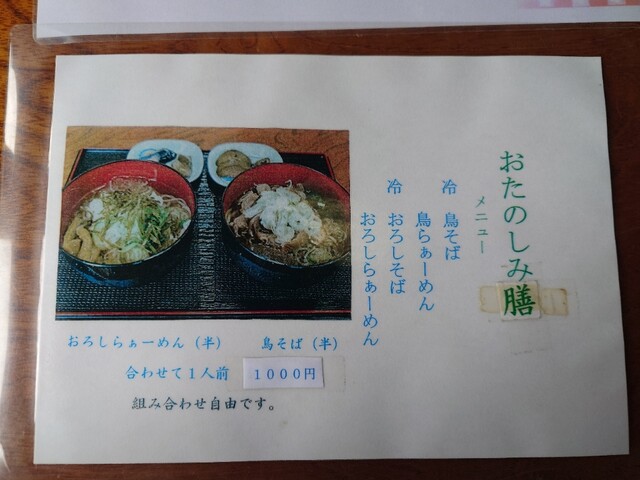 おたのしみ膳
メニュー
冷 鳥そば
鳥らぁーめん
冷 おろしそば
おろしらぁーめん
おろしらぁーめん（半）
鳥そば（半）
合わせて１人前 １０００円
組み合わせ自由です。